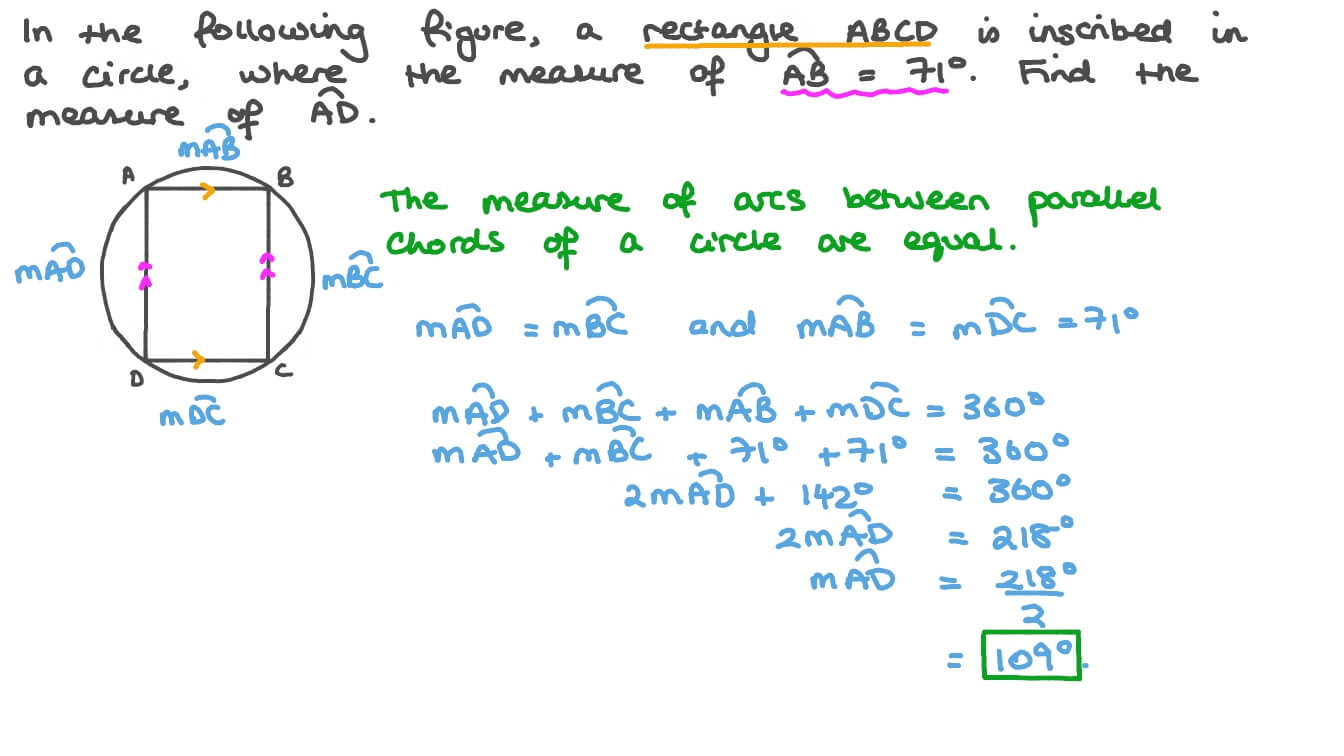 In the following figure, a rectangle ABCD is inscribed in
a circle, where the measure of A͡B = 71°. Find the
measure of A͡D.
mA͡B
A B
mA͡D
mB͡C
D C
mD͡C
The measure of arcs between parallel
chords of a circle are equal.
mA͡D = mB͡C and mA͡B = mD͡C = 71°
mA͡D + mB͡C + mA͡B + mD͡C = 360°
mA͡D + mB͡C + 71° + 71° = 360°
2mA͡D + 142° = 360°
2mA͡D = 218°
mA͡D = 218°
2
= 109°.